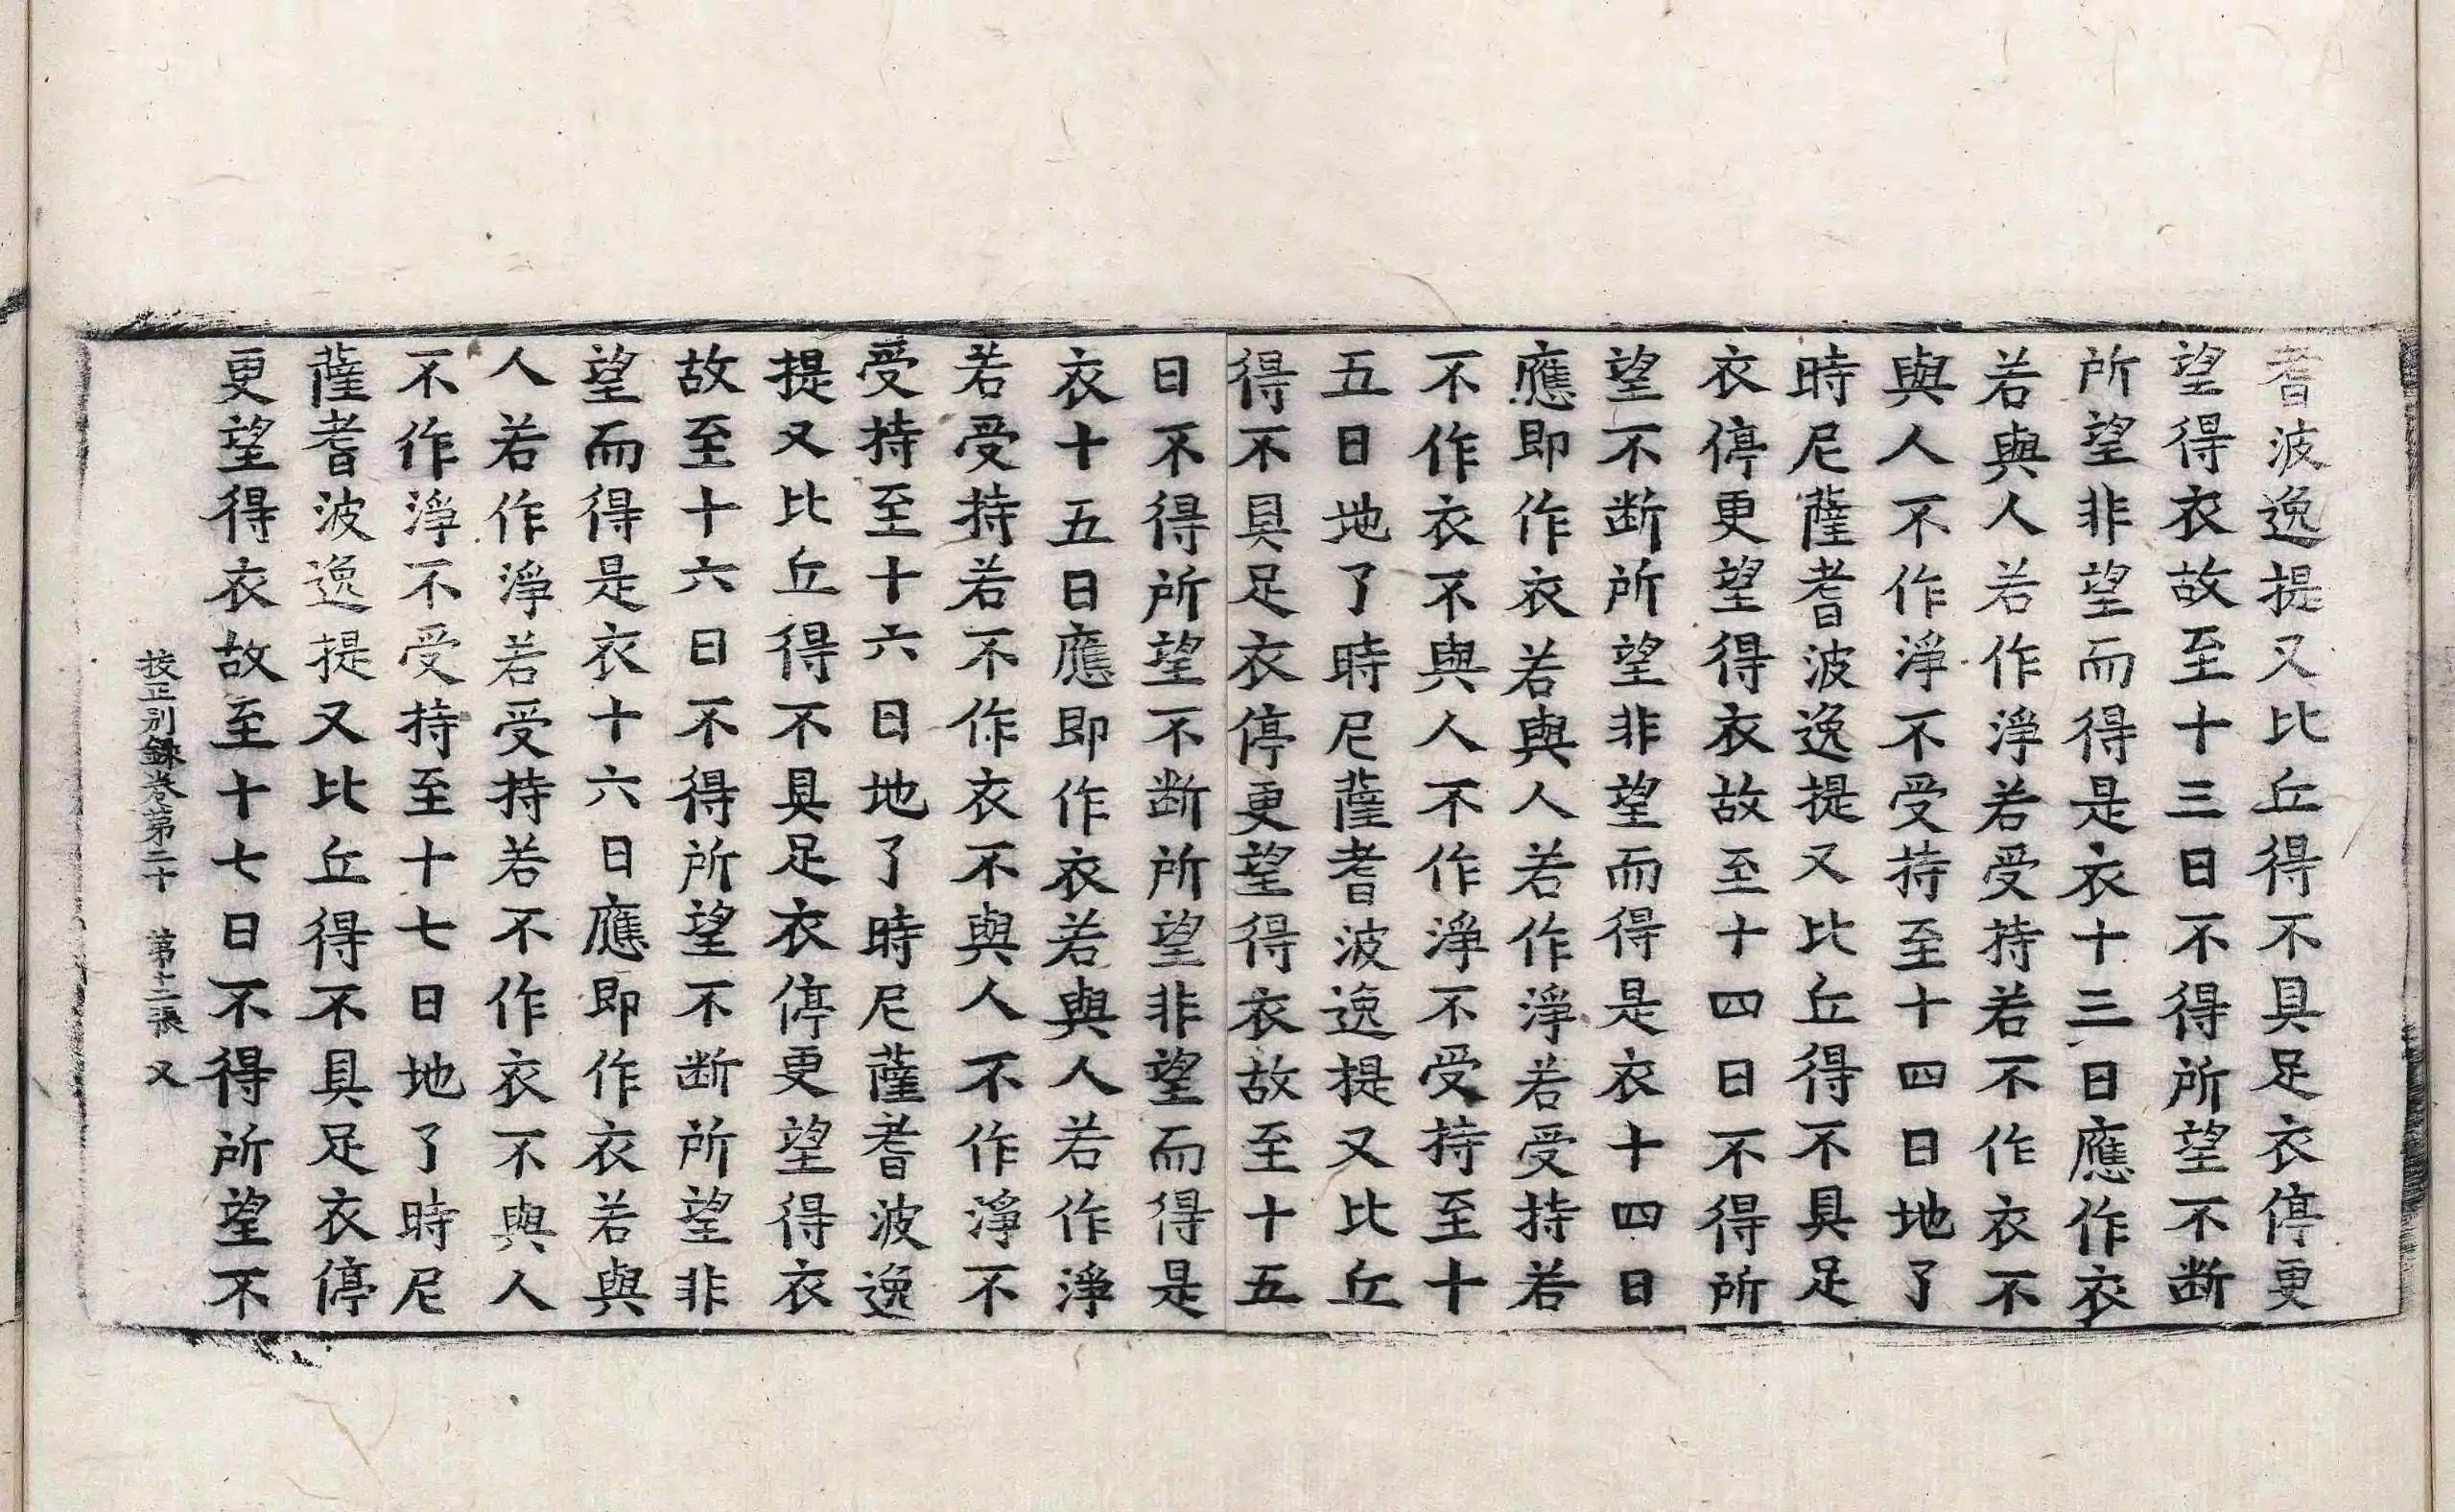 耆波逸提又比丘得不具足衣停更
望得衣故至十三日不得所望不断
所望非望而得是衣十三日應作衣
若與人若作淨若受持若不作衣不
與人不作淨不受持至十四日地了
時尼薩耆波逸提又比丘得不具足
衣停更望得衣故至十四日不得所
望不断所望非望而得是衣十四日
應即作衣若與人若作淨若受持若
不作衣不與人不作淨不受持至十
五日地了時尼薩耆波逸提又比丘
得不具足衣停更望得衣故至十五
日不得所望不断所望非望而得是
衣十五日應即作衣若與人若作淨
若受持若不作衣不與人不作淨不
受持至十六日地了時尼薩耆波逸
提又比丘得不具足衣停更望得衣
故至十六日不得所望不断所望非
望而得是衣十六日應即作衣若與
人若作淨若受持若不作衣不與人
不作淨不受持至十七日地了時尼
薩耆波逸提又比丘得不具足衣停
更望得衣故至十七日不得所望不
校正別録卷第二十 第十二張 又